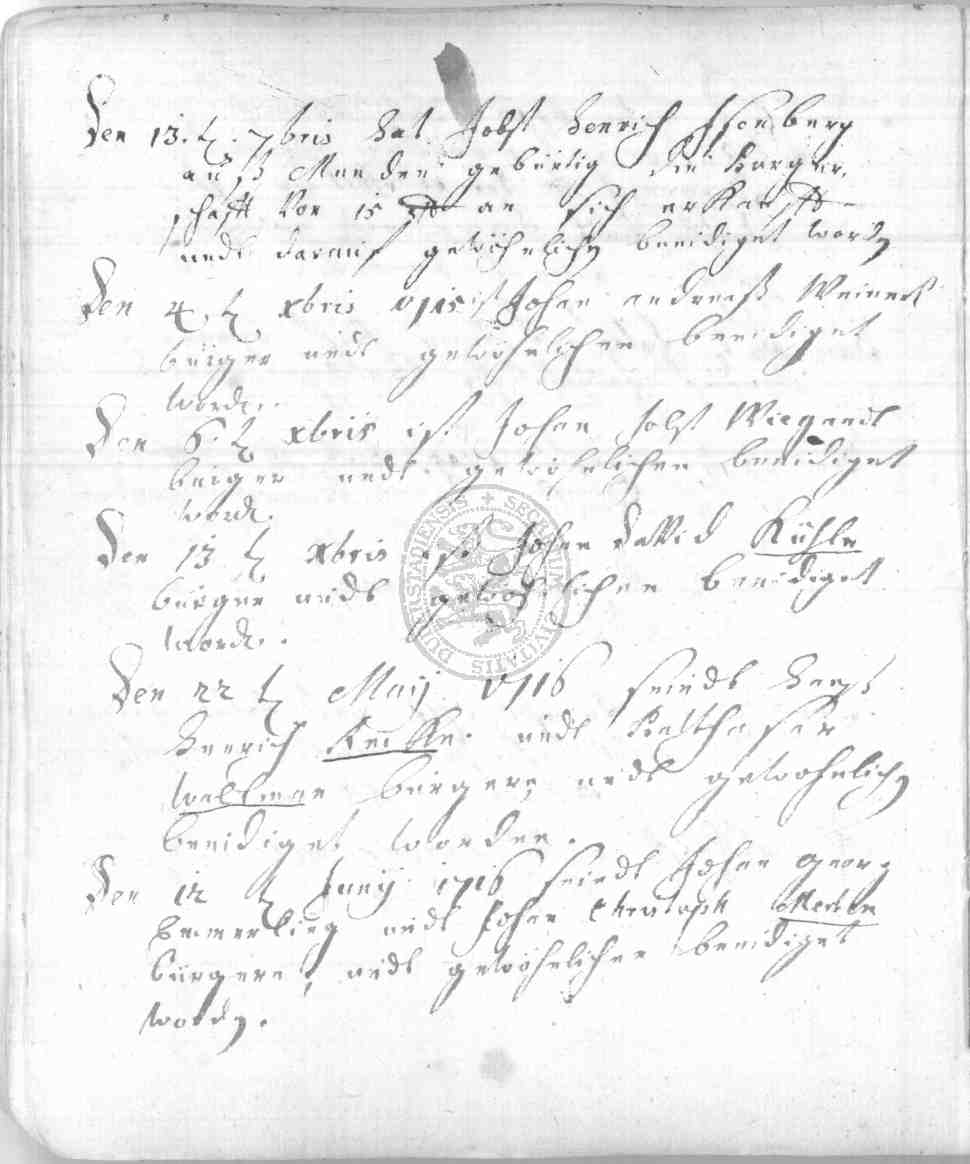 Den 13. t. 7bris hat Jobst Henrich Isenberg
auß Munden gebürtig die burger,
schafft vor 15 an sich erkaufft
undt darauf gewöhnlich beeidiget worden
Den 4. t. xbris 1715 ist Johan andreaß Weinert
burger undt gewöhnlichen beeidiget
worden.
Den 6. t xbris ist Johan Jobst Wiegandt
burger undt gewöhnlichen beeidiget
worden.
Den 13 t xbris ist Johan david Kühle
burger undt gewöhnlichen beeidiget
worden.
Den 22 t Maij 1716 seindt Hanß
Henrich undt Balthasar
Wollman burgere undt gewöhnlich
beeidiget worden.
Den 12 t Junij 1716 seindt Johan Georg
Emmerling undt Johan Christoph
burgere, undt gewöhnlichen beeidiget
worden.
SECRETUM CIVITATIS DUDERSTADIENSIS